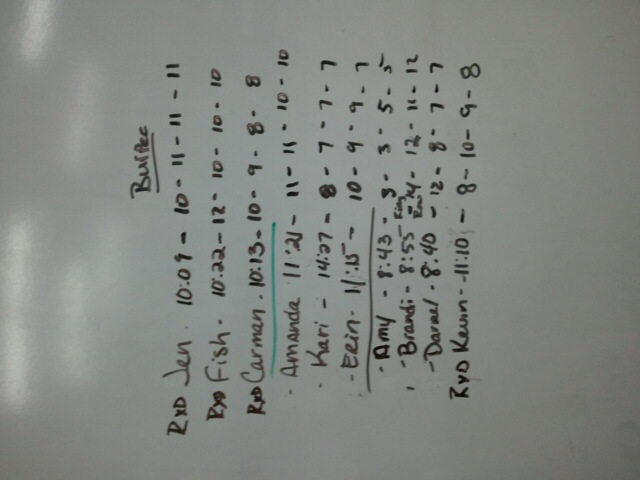 Burpee
RxD Jen. 10:09 - 10 - 11 - 11 - 11
RxD Fish. 10:22 - 12 - 10 - 10 - 10
RxD Carman. 10:13 - 10 - 9 - 8 - 8
· Amanda 11:21 - 11 - 11 - 10 - 10
· Kari - 14:27 - 8 - 7 - 7 - 7
- Erin - 11:15 - 10 - 9 - 9 - 7
- Amy - 8:43 - 3 - 3 - 5 - 5
- Brandi - 8:55 - Ring Row - 14 - 12 - 11 - 12
- Darnel - 8:40 - 12 - 8 - 7 - 7
RxD Kevin - 11:10 - 8 - 10 - 9 - 8